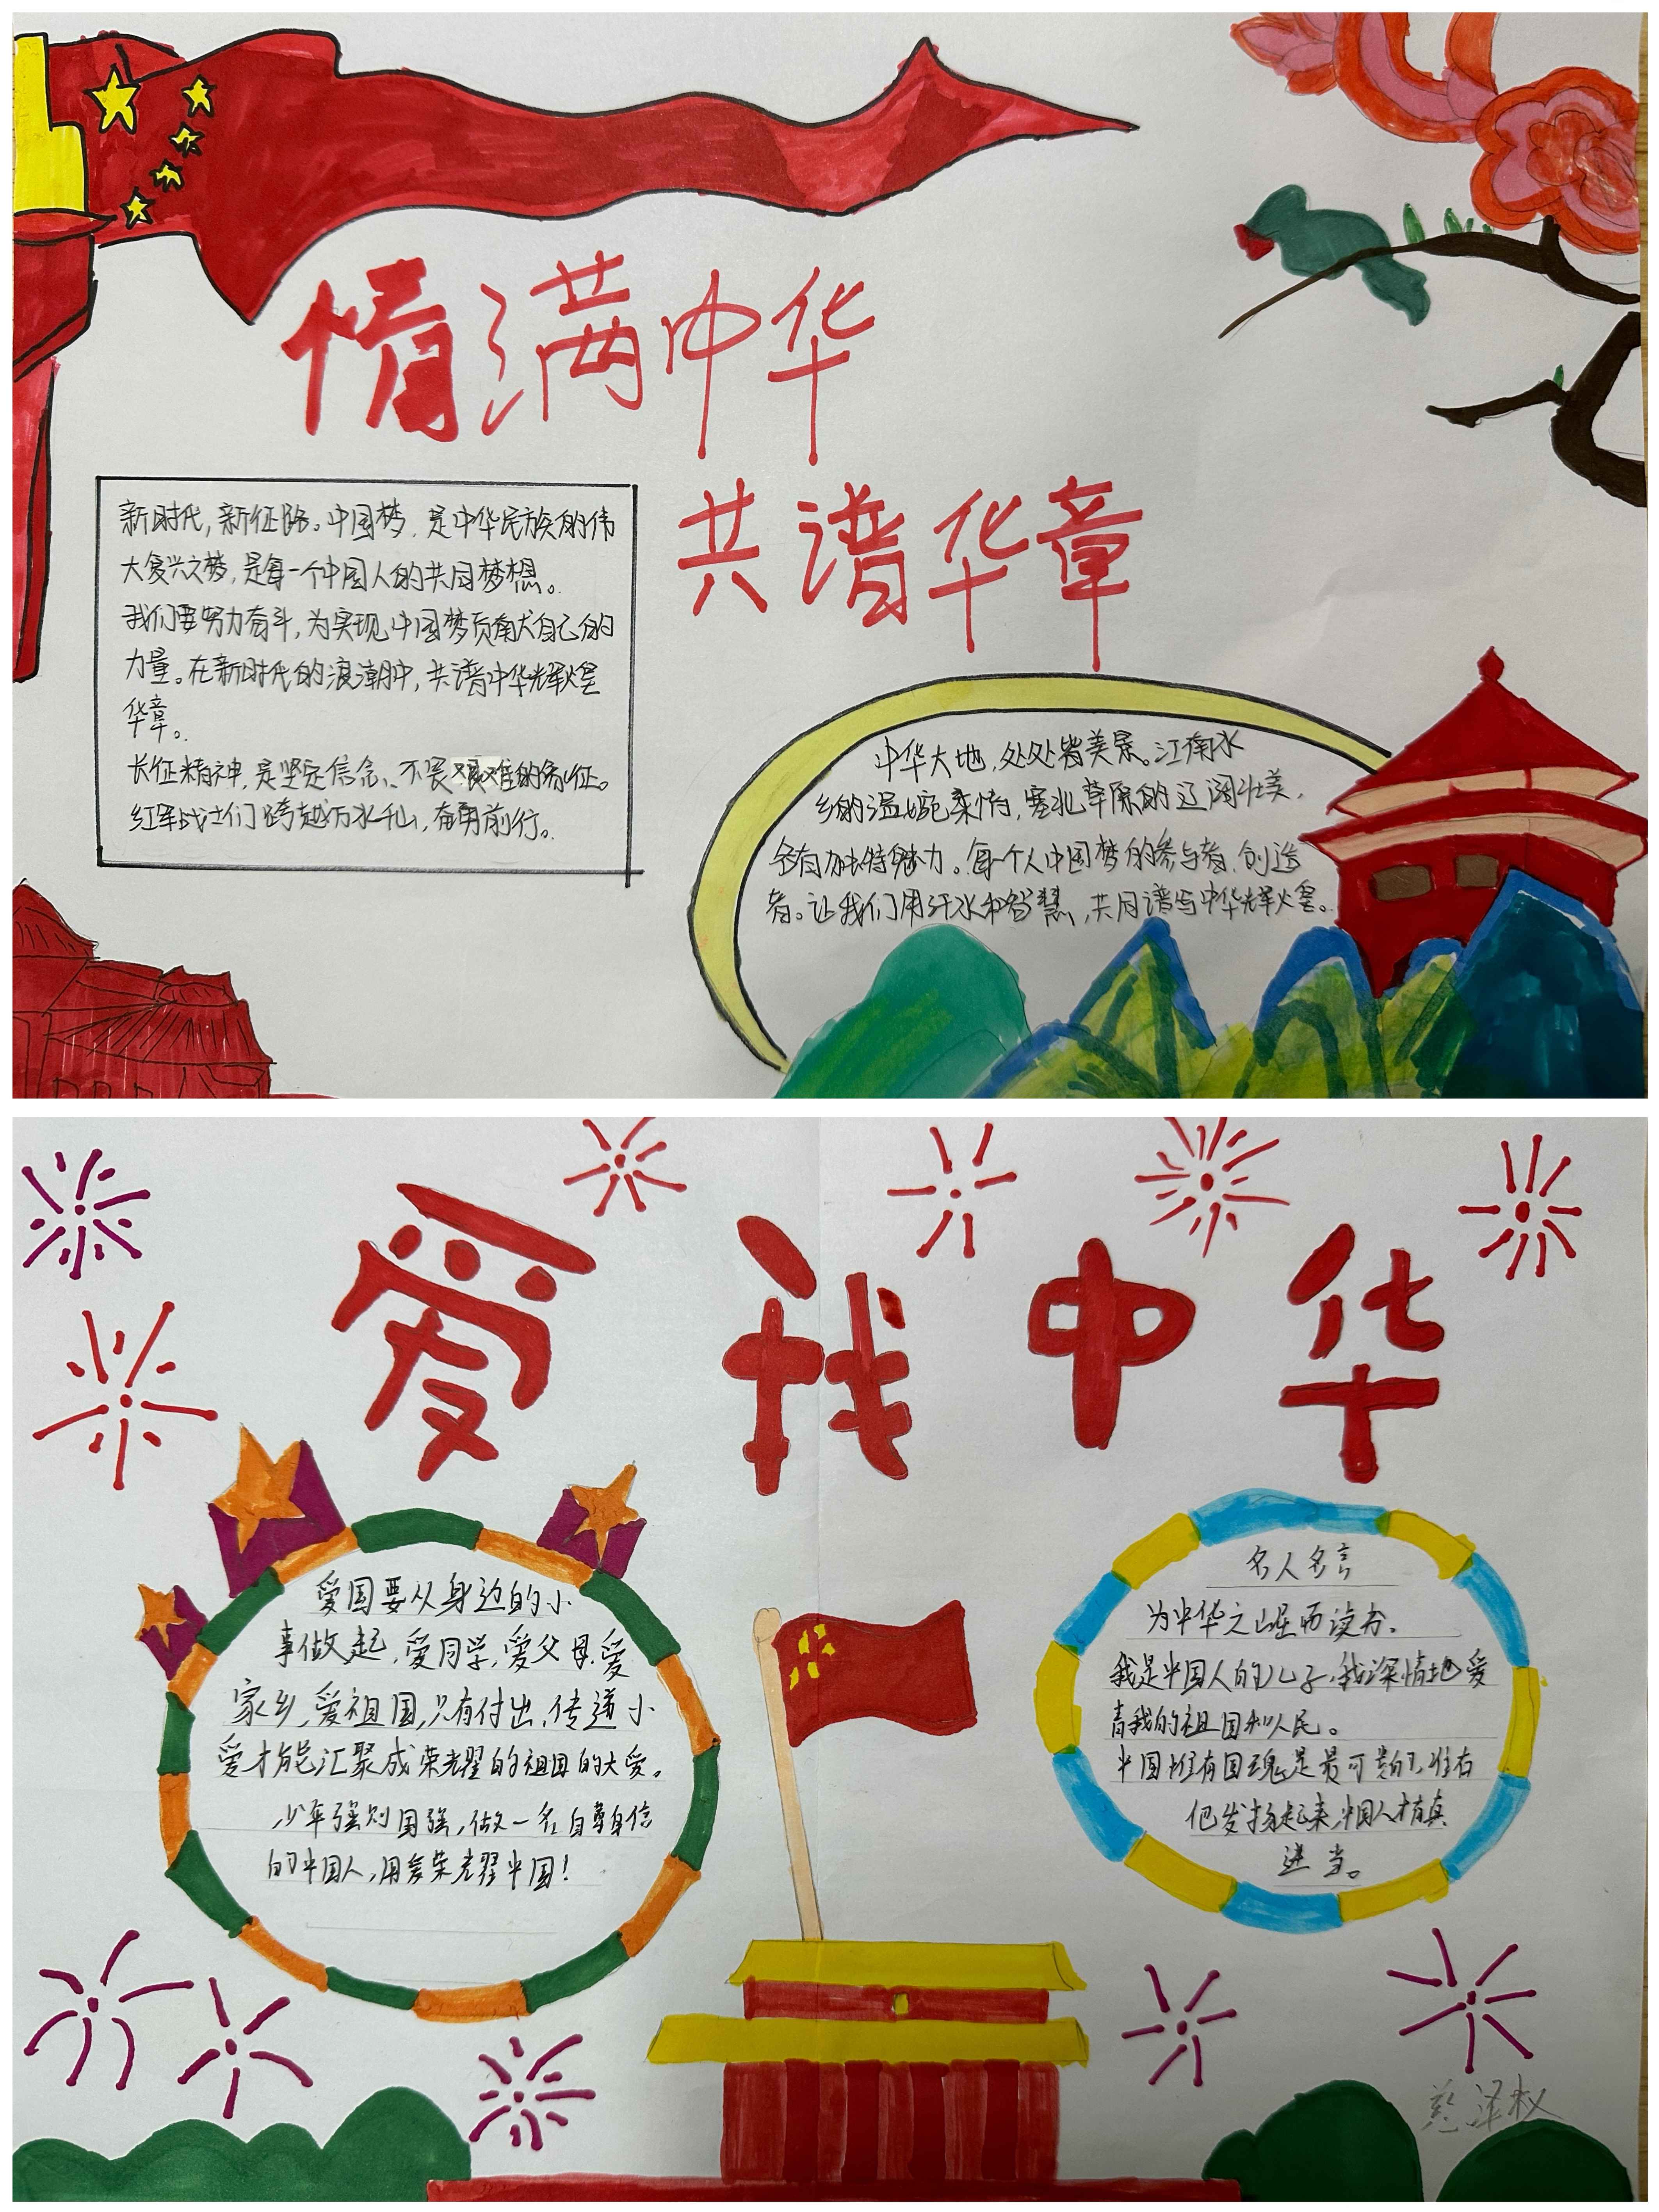 情满中华
共谱华章
新时代,新征路。中国梦,是中华民族的伟
大复兴之梦,是每一个中国人的共同梦想。
我们要努力奋斗,为实现中国梦贡献自己的
力量。在新时代的浪潮中,共谱中华辉煌
华章。
长征精神,是坚定信念、不畏艰难的象征。
红军战士们跨越万水千山,奋勇前行。
中华大地,处处皆美景。江南水
乡的温婉柔情,塞北草原的辽阔壮美,
各有独特魅力。每一个人中国梦的参与者,创造
者。让我们用汗水和智慧,共同谱写中华辉煌。
爱我中华
爱国要从身边的小
事做起,爱同学,爱父母,爱
家乡,爱祖国,只有付出,传递小
爱才能汇聚成荣耀的祖国的大爱。
少年强则国强,做一名自尊自信
的中国人,用爱荣耀中国!
名人名言
为中华之崛而读书。
我是中国人的儿子,我深情地爱
着我的祖国和人民。
中国惟有国魂是最可贵的,惟有
他发扬起来,中国人才有真
进步。
蔡泽权